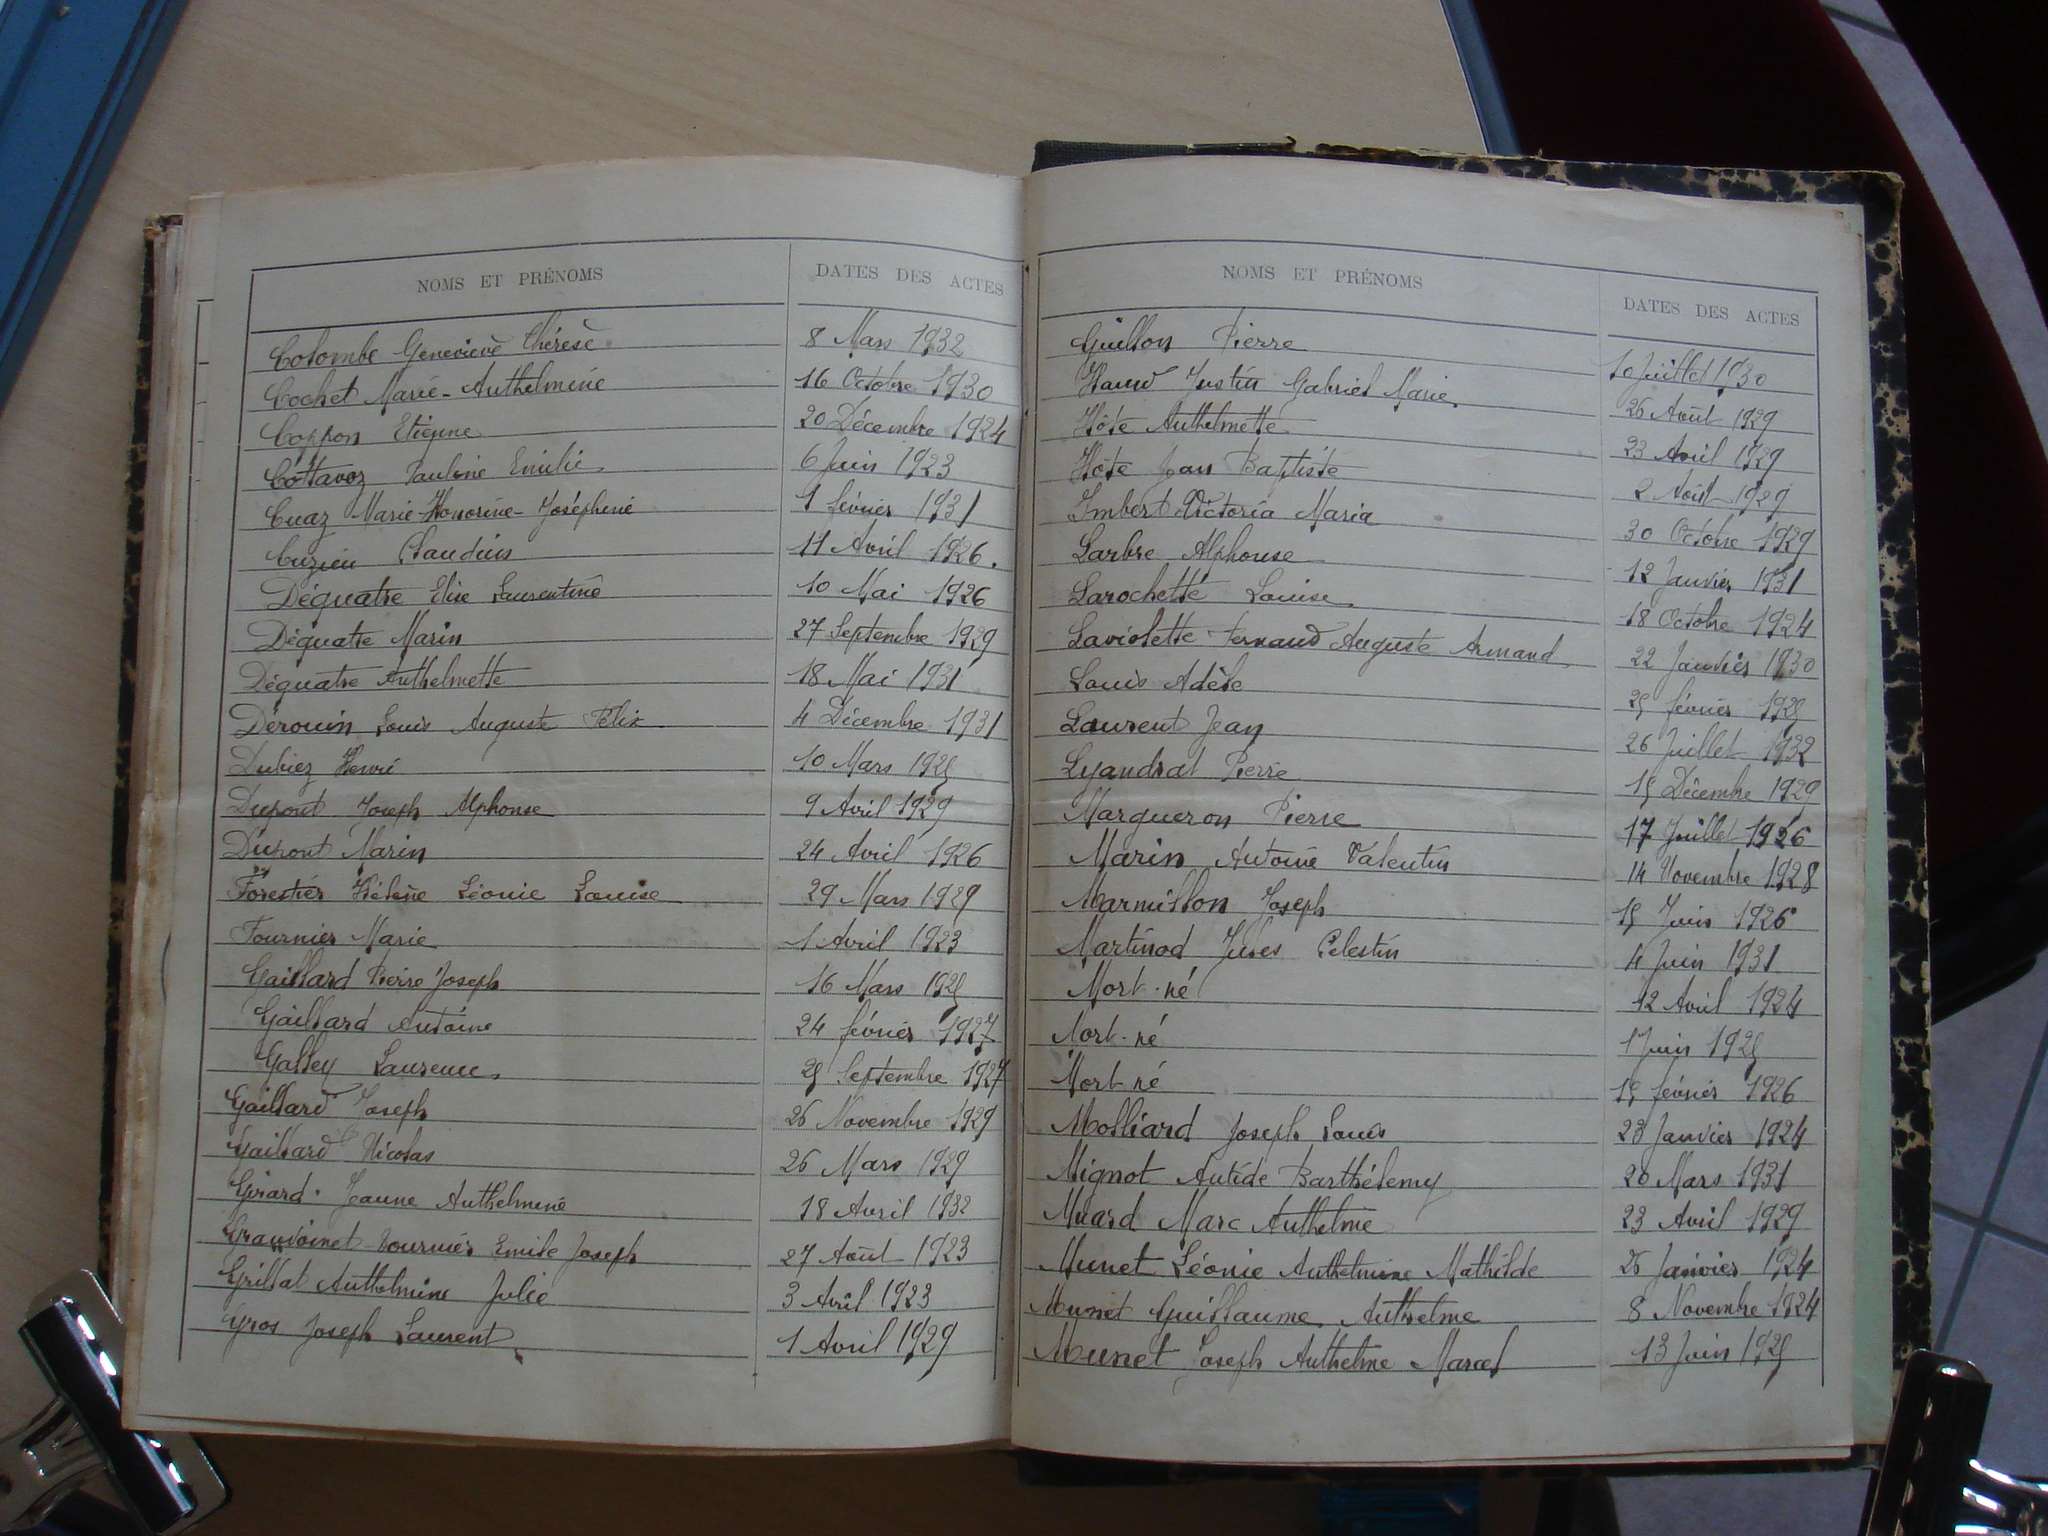 NOMS ET PRÉNOMS DATES DES ACTES
Colombe Geneviève Thérèse 8 Mars 1932
Cochet Marie-Anthelmine 16 Octobre 1930
Coppon Etienne 20 Décembre 1924
Cottavoz Pauline Emilie 6 Juin 1923
Cuaz Marie-Honorine-Joséphine 1 février 1931
Cuzieu Claudius 11 Avril 1926.
Déquatre Elise Laurentine 10 Mai 1926
Déquatre Marin 27 Septembre 1929
Déquatre Anthelmette 18 Mai 1931
Dérouin Louis Auguste Félix 4 Décembre 1931
Dubiez Henri 10 Mars 1925
Dupont Joseph Alphonse 9 Avril 1929
Dupont Marin 24 Avril 1926
Forestier Hélène Léonie Louise 29 Mars 1929
Fournier Marie 1 Avril 1923
Gaillard Pierre Joseph 16 Mars 1925
Gaillard Antoine 24 février 1927
Galley Laurence 25 Septembre 1927
Gaillard Joseph 26 Novembre 1929
Gaillard Nicolas 26 Mars 1929
Girard Jeanne Anthelmine 18 Avril 1932
Grandoinet Tournier Emile Joseph 27 Août 1923
Grillat Anthelmine Julie 3 Avril 1923
Gros Joseph Laurent 1 Avril 1929
NOMS ET PRÉNOMS DATES DES ACTES
Guillon Pierre 10 Juillet 1930
Hand Justin Gabriel Marie 26 Août 1929
Hôte Anthelmette 23 Avril 1929
Hôte Jean Baptiste 2 Août 1929
Imbert Victoria Maria 30 Octobre 1929
Larbre Alphonse 12 Janvier 1931
Larochette Louise 18 Octobre 1924
Laviolette Fernand Auguste Armand 22 Janvier 1930
Louis Adèle 25 février 1925
Laurent Jean 26 Juillet 1932
Lyandrat Pierre 15 Décembre 1929
Margueron Pierre 17 Juillet 1926
Marin Antoine Valentin 14 Novembre 1928
Marmillon Joseph 15 Juin 1926
Martinod Jules Célestin 4 Juin 1931
Mort-né 12 Avril 1924
Mort-né 1 Juin 1925
Mort-né 15 février 1926
Molliard Joseph Louis 23 Janvier 1924
Mignot Antide Barthélemy 20 Mars 1931
Muard Marc Anthelme 23 Avril 1929
Munet Léonie Anthelmine Mathilde 26 Janvier 1924
Munet Guillaume Anthelme 8 Novembre 1924
Munet Joseph Anthelme Marcel 13 Juin 1925